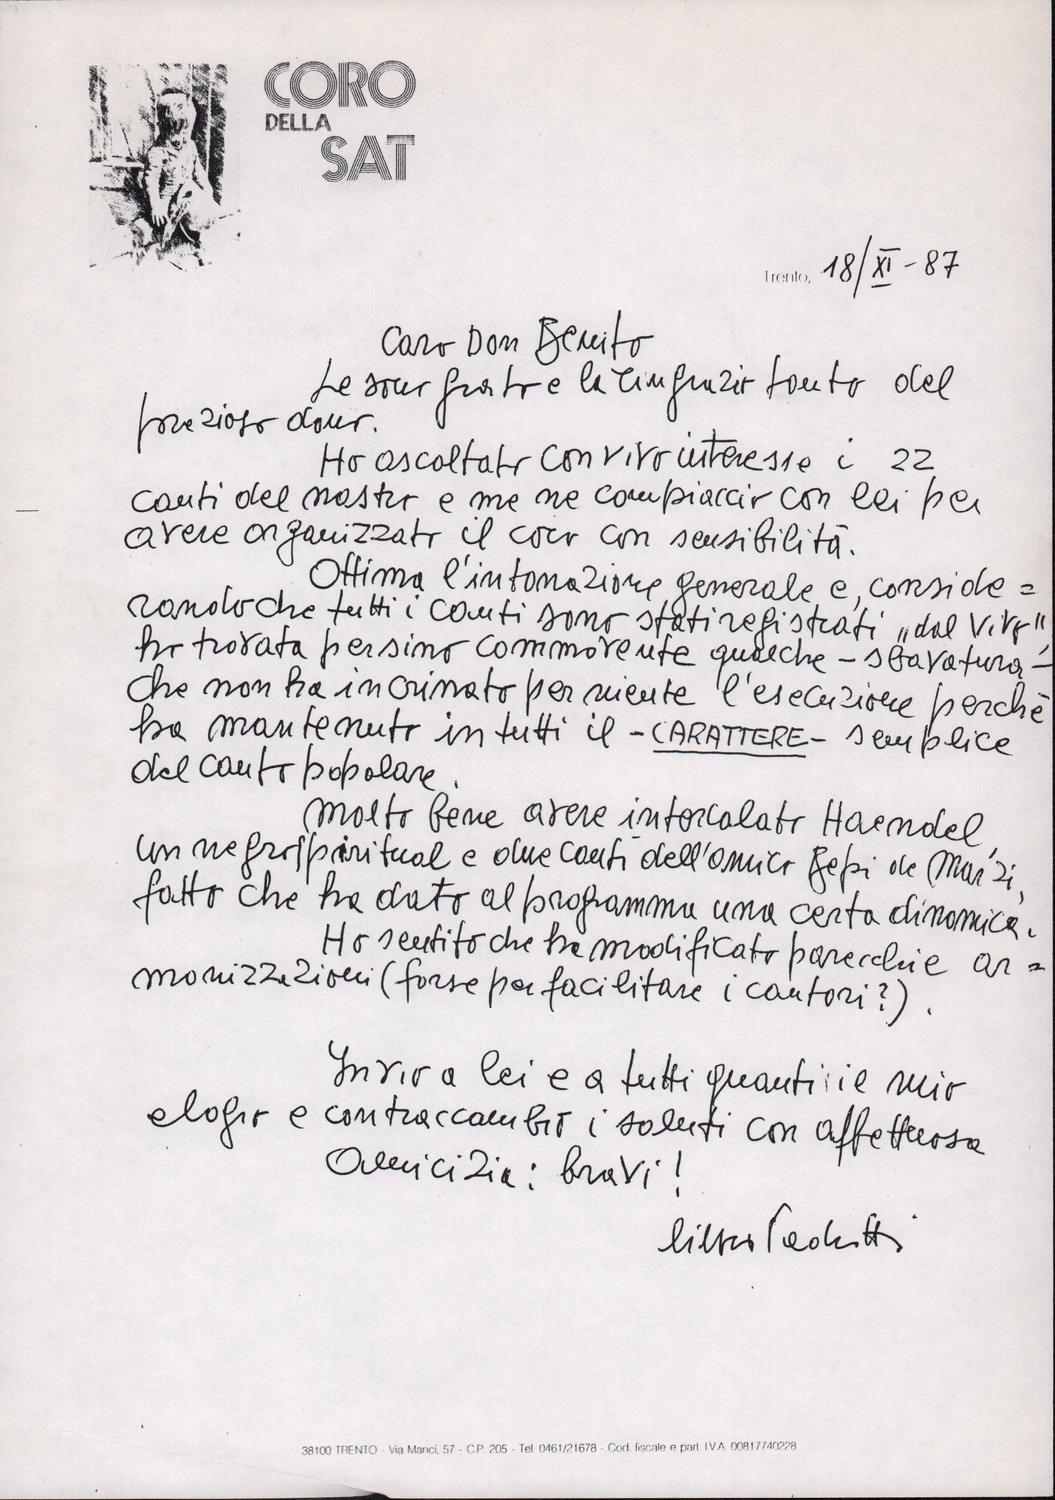 CORO
DELLA
SAT
Trento, 18/XI-87
Caro Don Benito
Le sono grato e la ringrazio tanto del
prezioso dono.
Ho ascoltato con vivo interesse i 22
canti del nastro e me ne compiaccio con lei per
avere organizzato il coro con sensibilità.
Ottima l'intonazione generale e, conside=
rando che tutti i canti sono stati registrati „dal vivo"
ho trovata persino commovente qualche - sbavatura -
che non ha incrinato per niente l'esecuzione perchè
ha mantenuto in tutti il - CARATTERE - semplice
del canto popolare.
Molto bene avere intercalato Haendel,
un negro spiritual e due canti dell'amico Bepi de Marzi,
fatto che ha dato al programma una certa dinamica.
Ho sentito che ha modificato parecchie ar=
monizzazioni (forse per facilitare i cantori?).
Invio a lei e a tutti quanti il mio
elogio e contraccambio i saluti con affettuosa
amicizia: bravi!
Silvio Pedrotti
38100 TRENTO - Via Manci, 57 - C.P. 205 - Tel. 0461/21678 - Cod. fiscale e part. I.V.A. 00817740228